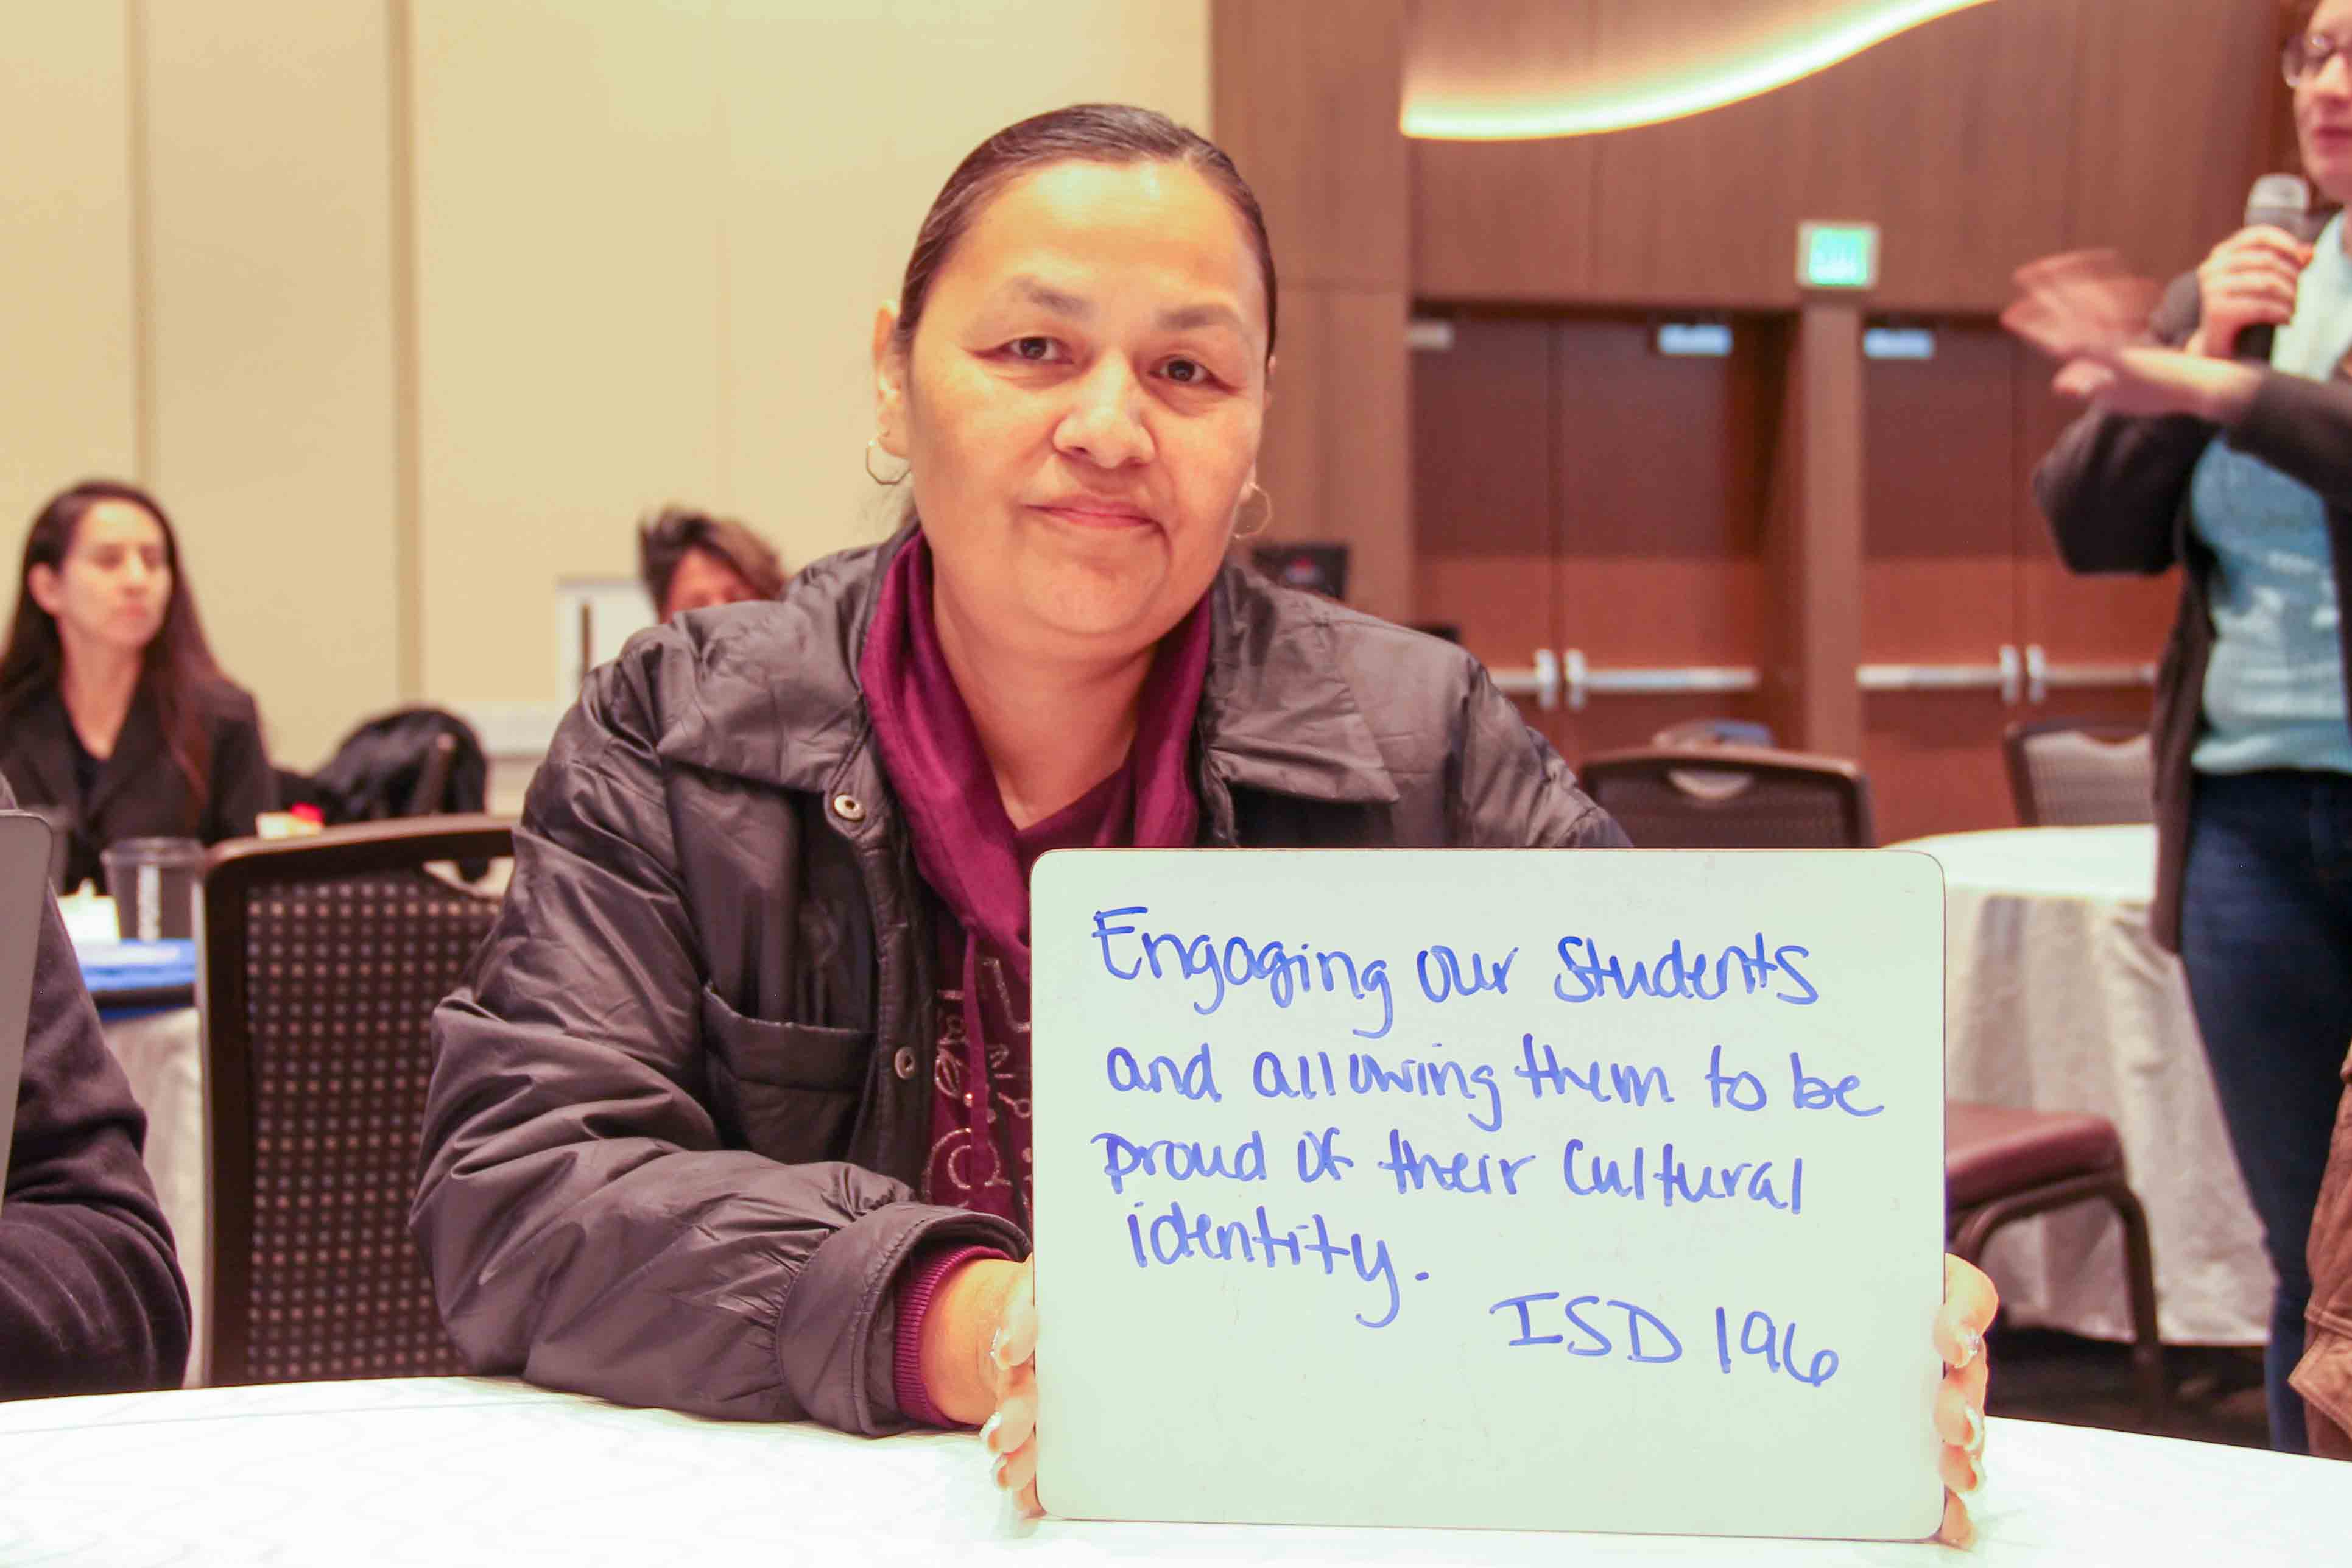 Engaging our students
and allowing them to be
proud of their Cultural
identity.
ISD 196